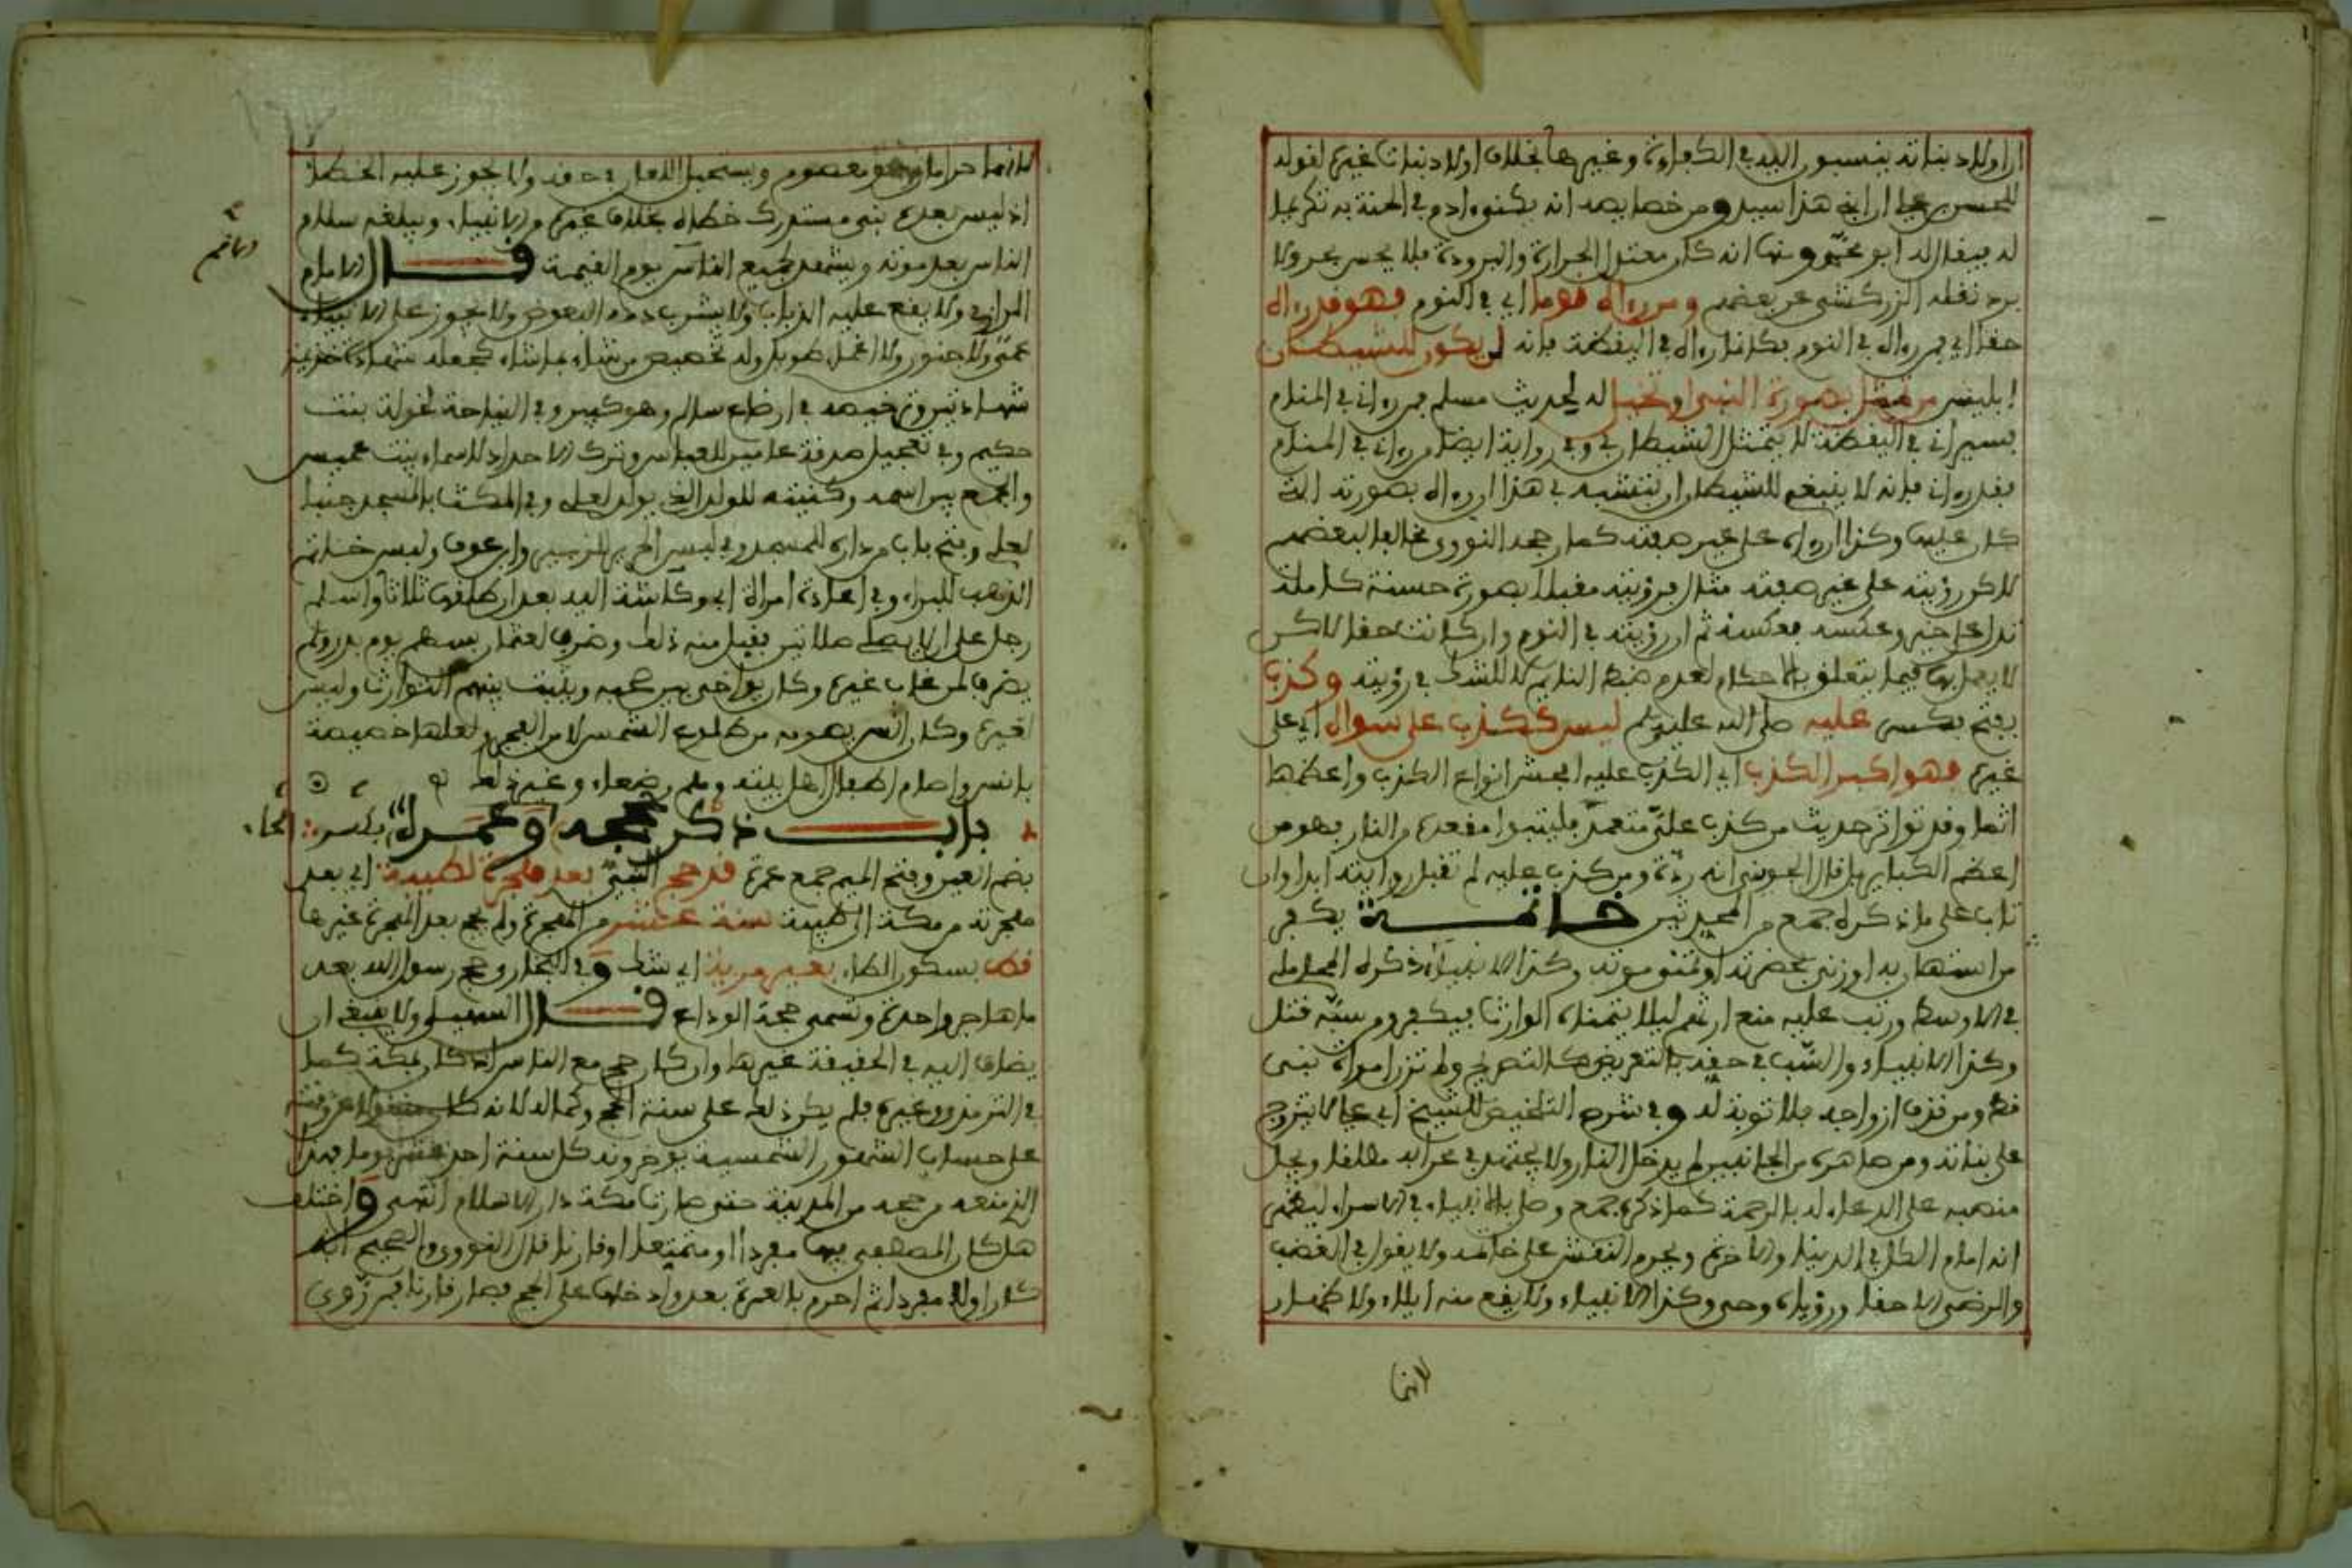 ان اولاد بناته ينسبون اليه في الكفاءة وغيرها بخلاف اولاد بنات غيره لقوله
للحسن بن علي ان ابني هذا سيد ومن خصايصه انه يكنى ادم في الجنة به تكريما
له فيقال له ابو محمد ومنها انه كان معتدل الحرارة والبرودة فلا يحس بحر ولا
برد نقله الزركشي عن بعضهم ومن رءاه نوما اي في النوم فهو قد رءاه
حقا اي من رءاه في النوم فكانما رءاه في اليقظة فانه لن يكون للشيطان
ابليس من تمثل بصورة النبي او تخيل له لحديث مسلم من رءاني في المنام
فسيراني في اليقظة لا يتمثل الشيطان بي وفي رواية ايضا من رءاني في المنام
فقد رءاني فانه لا ينبغي للشيطان ان يتشبه بي هذا ان رءاه بصورته التي
كان عليها وكذا ان رءاه على غير صفته كما رجحه النووي مخالفا لبعضهم
لاكن رؤيته على غير صفته مثال فرؤيته مقبلا بصورة حسنة كاملة
تدل على خير وعكسه فعكسه ثم ان رؤيته في النوم وان كانت حقا لاكن
لا يعمل بها فيما يتعلق بالاحكام لعدم ضبط النايم لا للشك في رؤيته وكذب
بفتح فكسر عليه صلى الله عليه وسلم ليس ككذب على سواه اي على
غيره فهو اكبر الكذب اي الكذب عليه افحش انواع الكذب واعظمها
اثما وقد تواتر حديث من كذب علي متعمدا فليتبوا مقعده من النار فهو من
اعظم الكباير بل قال الجويني انه ردة ومن كذب عليه لم تقبل روايته ابدا وان
تاب على ما ذكره جمع من المحدثين خاتمة يكفر
من استهان به او زنى بحضرته او تمنى موته وكذا الانبياء ذكره المحاملي
في الاوسط ورتب عليه منع ارثهم ليلا يتمناه الوارث فيكفر ومن سبه قتل
وكذا الانبياء والسب في حقه بالتعريض كالتصريح ولم تزن امراة نبي
قط ومن قذف ازواجه فلا توبة له وفي شرح التلخيص للشيخ ابي علي لا يتزوج
على بناته ومن صاهره من الجانبين لم يدخل النار ولا يجتهد في محرابه مطلقا ويجل
منصبه على الدعاء له بالرحمة كما ذكره جمع وصلى بالانبياء في الاسراء ليظهر
انه امام الكل في الدنيا والاخرة ويحرم النقش على خاتمه ولا يقول في الغضب
والرضى الا حقا ورؤياه وحي وكذا الانبياء ولا يقع منه ايلاء ولا ظهار
لانهما
لانهما حراما وهو معصوم ويستحيل اللعان في حقه ولا يجوز عليه الخطا
اذ ليس بعده نبي يستدرك خطاه بخلاف غيره من الانبياء ويبلغه سلام
الناس بعد موته ويشهد لجميع الناس يوم القيمة قال الامام
الرازي ولا يقع عليه الذباب ولا يشرب دمه البعوض ولا يجوز على الانبياء
عمى ولا جنون ولا اغماء طويل وله تخصيص من شاء بما شاء كجعله شهادة خزيمة
شهادتين وترخيصه في ارضاع سالم وهو كبير وفي النياحة لخولة بنت
حكيم وفي تعجيل صدقة عامين للعباس وترك الاحداد لاسماء بنت عميس
والجمع بين اسمه وكنيته للولد الذي يولد لعلي وفي المكث بالمسجد جنبا
لعلي وفتح باب من داره للمسجد وفي لبس الحرير للزبير وابن عوف ولبس خاتم
الذهب للبراء وفي اعادة امراة ابي ركانة اليه بعد ان طلقها ثلاثا واسلم
رجل على ان لا يصلي الا صلاتين فقبل منه ذلك وضرب لعثمان بسهم يوم بدر ولم
يضرب لمن غاب غيره وكان يواخي بين صحبه ويثبت بينهم التوارث وليس
لغيره وكان انس يصوم من طلوع الشمس لا من الفجر ولعلها خصيصة
بانس واصام اطفال اهل بيته وهم رضعاء وغير ذلك
باب ذكر حجه وعمره بكسر الحاء
بضم العين وفتح الميم جمع عمرة قد حج النبي بعد هجرة لطيبة اي بعد
هجرته من مكة الى طيبة سنة عشر من الهجرة ولم يحج بعد الهجرة غيرها
قط بسكون الطاء بغير مرية اي شك وفي البخاري حج رسول الله بعد
ما هاجر واحدة وتسمى حجة الوداع قال السهيلي ولا ينبغي ان
يضاف اليه في الحقيقة غيرها وان كان حج مع الناس اذ كان بمكة كما
في الترمذي وغيره فلم يكن ذلك على سنة الحج وكماله لانه كان مغلوبا
على حساب الشهور الشمسية يوخرونه كل سنة احد عشر يوما وهذا
الذي منعه من حجه من المدينة حتى صارت مكة دار الاسلام انتهى واختلف
هل كان المصطفى فيها مفردا او متمتعا او قارنا قال النووي والصحيح انه
كان اولا مفردا ثم احرم بالعمرة بعد وادخلها على الحج فصار قارنا فمن روى